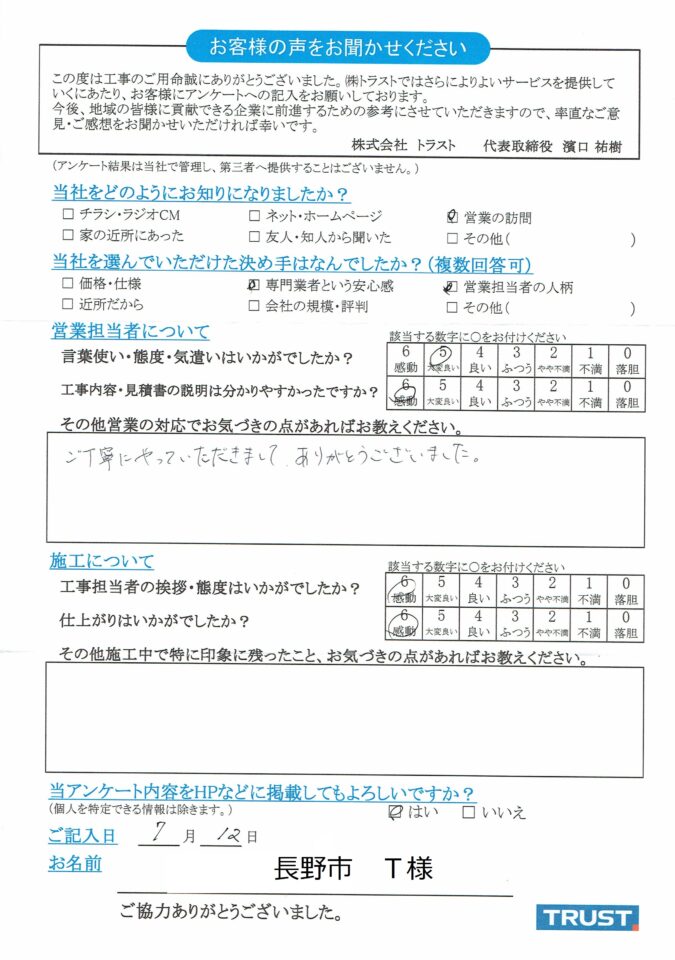 お客様の声をお聞かせください
この度は工事のご用命誠にありがとうございました。㈱トラストではさらによりよいサービスを提供して
いくにあたり、お客様にアンケートへの記入をお願いしております。
今後、地域の皆様に貢献できる企業に前進するための参考にさせていただきますので、率直なご意
見・ご感想をお聞かせいただければ幸いです。
株式会社 トラスト 代表取締役 濱口 祐樹
(アンケート結果は当社で管理し、第三者へ提供することはございません。)
当社をどのようにお知りになりましたか？
□ チラシ・ラジオCM □ ネット・ホームページ ☑ 営業の訪問
□ 家の近所にあった □ 友人・知人から聞いた □ その他( )
当社を選んでいただけた決め手はなんでしたか？(複数回答可)
□ 価格・仕様 ☑ 専門業者という安心感 ☑ 営業担当者の人柄
□ 近所だから □ 会社の規模・評判 □ その他( )
営業担当者について 該当する数字に○をお付けください
言葉使い・態度・気遣いはいかがでしたか？ 6 5 4 3 2 1 0
感動 大変良い 良い ふつう やや不満 不満 落胆
工事内容・見積書の説明は分かりやすかったですか？ 6 5 4 3 2 1 0
感動 大変良い 良い ふつう やや不満 不満 落胆
その他営業の対応でお気づきの点があればお教えください。
ご丁寧にやっていただきまして、ありがとうございました。
施工について 該当する数字に○をお付けください
工事担当者の挨拶・態度はいかがでしたか？ 6 5 4 3 2 1 0
感動 大変良い 良い ふつう やや不満 不満 落胆
仕上がりはいかがでしたか？ 6 5 4 3 2 1 0
感動 大変良い 良い ふつう やや不満 不満 落胆
その他施工中で特に印象に残ったこと、お気づきの点があればお教えください。
当アンケート内容をHPなどに掲載してもよろしいですか？
(個人を特定できる情報は除きます。) ☑ はい □ いいえ
ご記入日 7 月 12 日
お名前 長野市 T様
ご協力ありがとうございました。
TRUST.